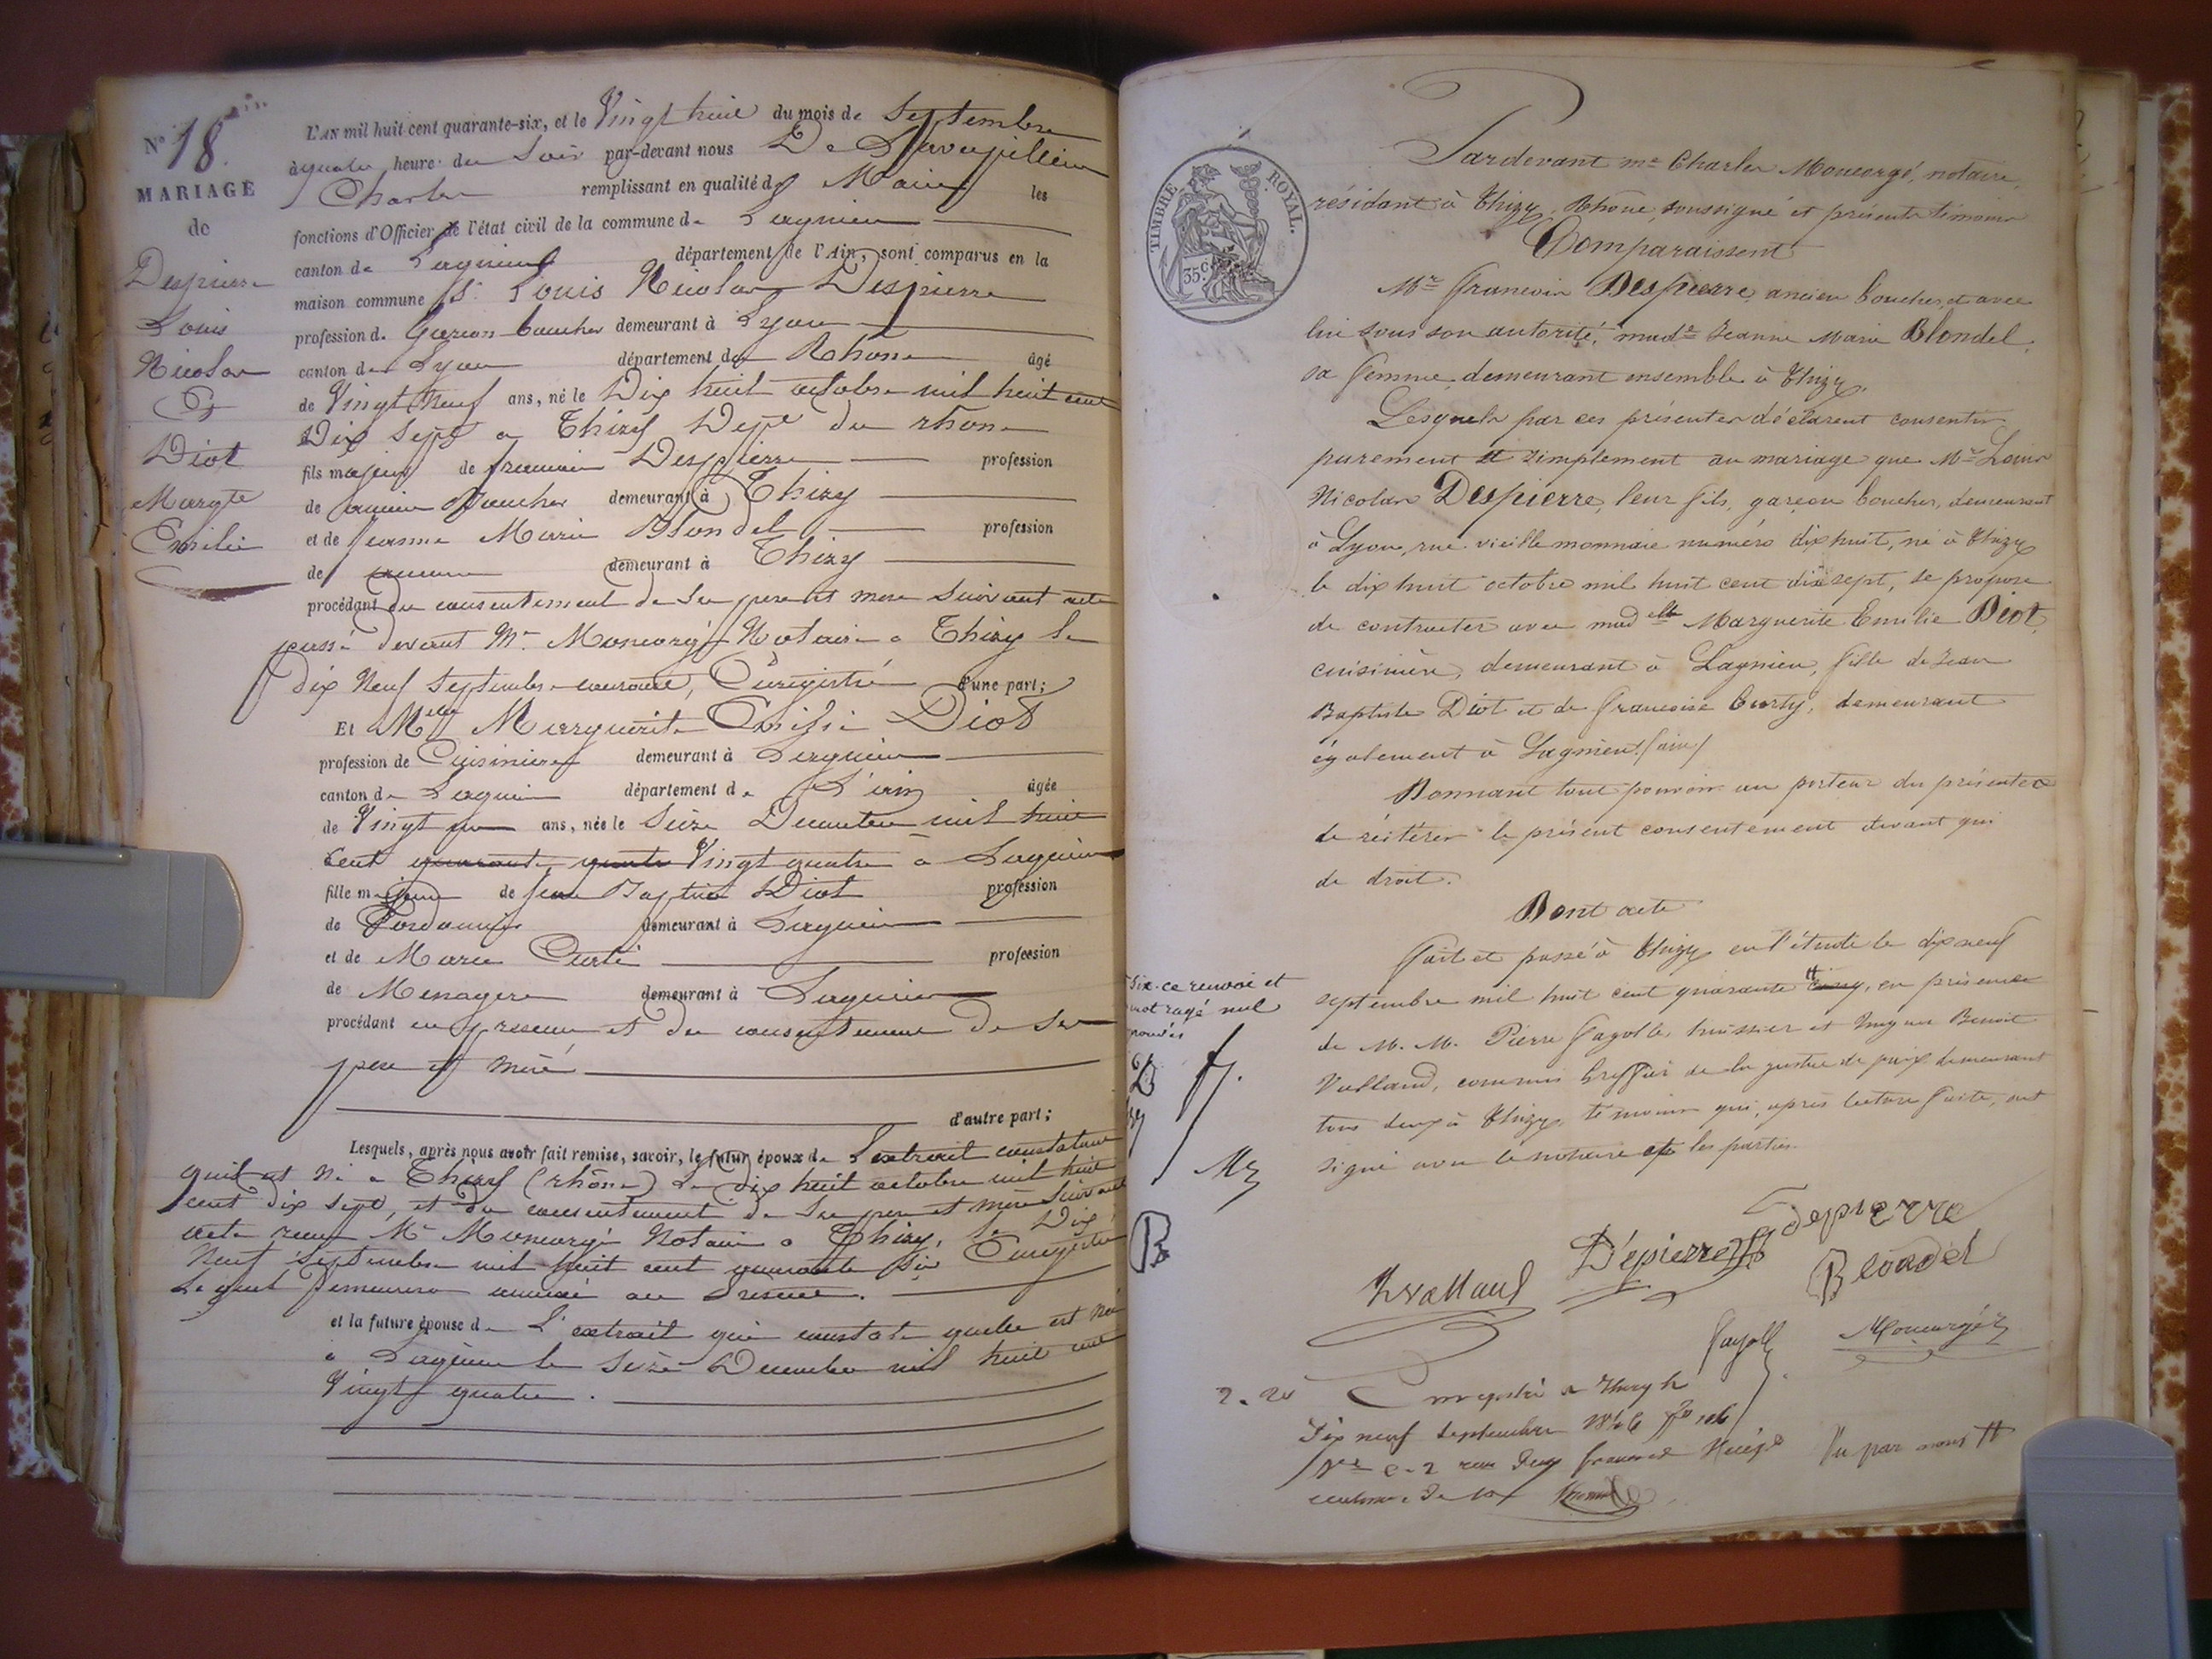 N° 18.
MARIAGE
de
Despierre
Louis
Nicolas
&
Diot
Margte
Emilie
L'AN mil huit cent quarante-six, et le Vingt huit du mois de Septembre
à quatre heure du Soir par-devant nous De
Charles remplissant en qualité de Maire les
fonctions d'Officier de l'état civil de la commune de Lagnieu
canton de Lagnieu département de l'Ain, sont comparus en la
maison commune Sr. Louis Nicolas Despierre
profession de Garcon boucher demeurant à Lyon
canton de Lyon département du Rhône âgé
de Vingt Neuf ans, né le Dix huit octobre mil huit cent
Dix Sept a Thizy Dept du rhône
fils majeur de francois Despierre profession
de ancien Boucher demeurant à Thizy
et de Jeanne Marie Blondel profession
de demeurant à Thizy
procédant du consentement de Ses pere et mere Suivant acte
passé devant Mr. Moncorgé Notaire a Thizy le
dix Neuf Septembre courant, Enregistré d'une part;
Et Melle Marguerite Emilie Diot
profession de Cuisiniere demeurant à Lagnieu
canton de Lagnieu département de L'ain âgée
de Vingt un ans, née le Seize Decembre mil huit
cent Vingt quatre a Lagnieu
fille majeure de Jean Baptiste Diot profession
de Cordonnier demeurant à Lagnieu
et de Marie Curti profession
de Menagere demeurant à Lagnieu
procédant en presence et du consentement de Ses
pere et mere
d'autre part;
Lesquels, après nous avoir fait remise, savoir, le futur époux de L'extrait constatant
quil est Né a Thizy (rhône) le dix huit octobre mil huit
cent dix sept, et du consentement de Ses pere et mere Suivant
acte recu Mr Moncorgé Notaire a Thizy, le Dix
Neuf Septembre mil huit cent quarante Six Enregistré
Lequel demeurera annexé au present.
et la future épouse de L'extrait qui constate quelle est Née
a Lagnieu le Seize Decembre mil huit cent
Vingt quatre.
TIMBRE ROYAL.
35c.
Pardevant me Charles Moncorgé, notaire,
résidant à Thizy, Rhône, soussigné et présents témoins
Comparaissent
Mr. Francois Despierre, ancien boucher, et avec
lui sous son autorité, made Jeanne Marie Blondel,
sa femme, demeurant ensemble à Thizy.
Lesquels par ces présentes déclarent consentir
purement et simplement au mariage que Mr Louis
Nicolas Despierre, leur fils, garçon boucher, demeurant
à Lyon, rue vieille monnaie numéro dix huit, né à Thizy
le dix huit octobre mil huit cent dix sept, se propose
de contracter avec madelle Marguerite Emilie Diot,
cuisinière, demeurant à Lagnieu, fille de Jean
Baptiste Diot et de Francoise Curty, demeurant
également à Lagnieu (ain)
Donnant tout pouvoir au porteur des présentes
de réitérer le présent consentement devant qui
de droit.
Dont acte
Fait et passé à Thizy en l'étude le dix neuf
septembre mil huit cent quarante tt cinq, en présence
de M. M. Pierre Fayolle, huissier et Benoit
Valland, commis Greffier de la justice de paix demeurant
tous deux à Thizy, témoins qui, après lecture faite, ont
signé avec le notaire et les parties.
tt Six. ce renvoi et
mot rayé nul
B
Depierre
depierre
Valland
Blondel
Fayolle
Moncorgé
2. 20
Enregistré a Thizy le
Dix neuf Septembre 1846 fo 106
Vo c. 2 recu deux francs Vingt
centimes
Vu par nous